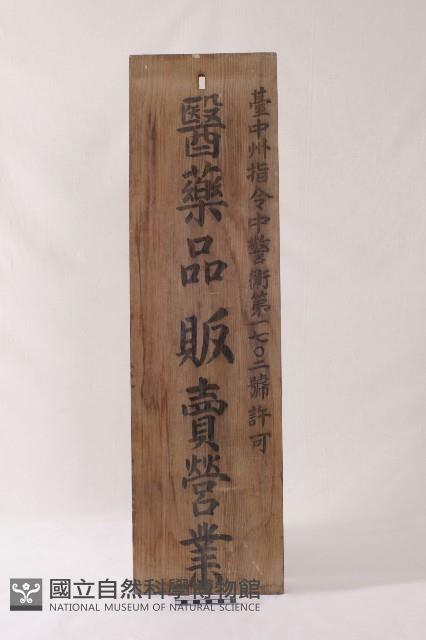 臺中州指令中警衛第一七〇二號許可
醫藥品販賣營業
國立自然科學博物館
NATIONAL MUSEUM OF NATURAL SCIENCE